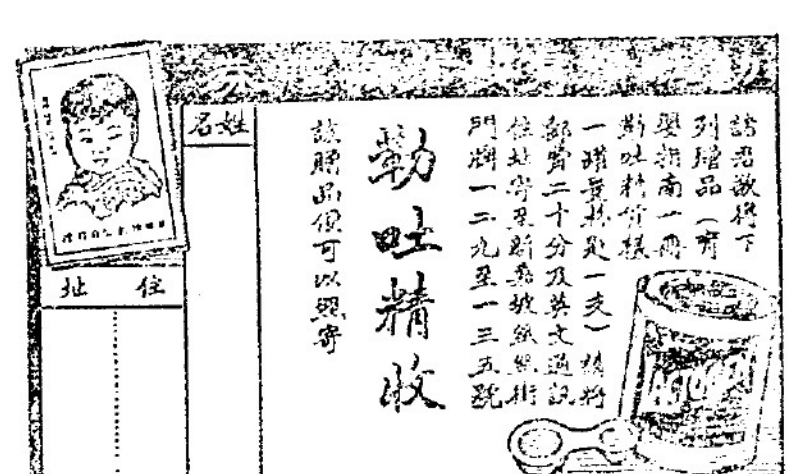 諸君欲得下
列贈品（育
嬰指南一冊
勒吐精樣
一罐量匙一支）請將
郵費二十分及英文通訊
住址寄至新嘉坡絲絲街
門牌一二九至一三五號
勒吐精收
該贈品便可以照寄
姓名
住址